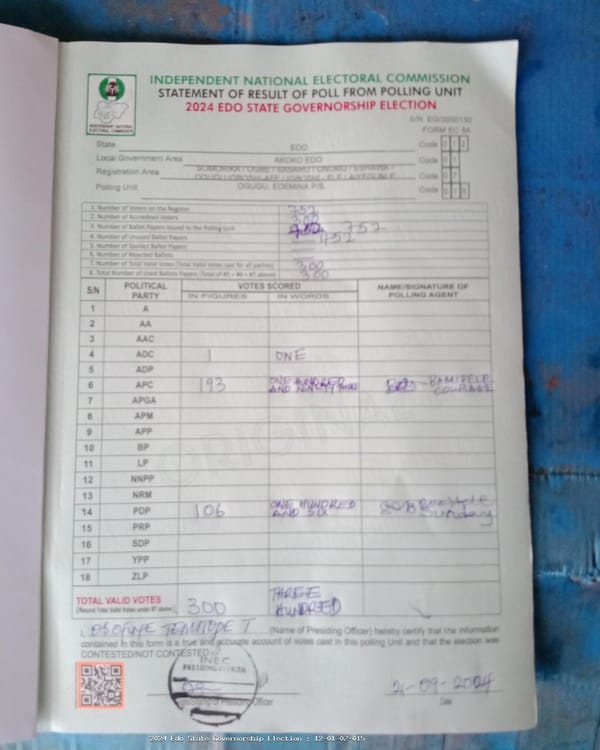 INDEPENDENT NATIONAL ELECTORAL COMMISSION
STATEMENT OF RESULT OF POLL FROM POLLING UNIT
2024 EDO STATE GOVERNORSHIP ELECTION
INDEPENDENT NATIONAL ELECTORAL COMMISSION
FORM EC 8A
State EDO Code 0 1 2
Local Government Area AKOKO EDO Code 0 1
Registration Area Code 0 7
Polling Unit OGUGU, EDEMINA P/S. Code 0 1 5
1. Number of Voters on the Register 752
2. Number of Accredited Voters 300
3. Number of Ballot Papers Issued to the Polling Unit 752
4. Number of Unused Ballot Papers 452
5. Number of Spoiled Ballot Papers
6. Number of Rejected Ballots
7. Number of Total Valid Votes (Total valid votes cast for all parties) 300
8. Total Number of Used Ballots Papers (Total of #5 + #6 + #7 above) 300
S/N POLITICAL PARTY VOTES SCORED NAME/SIGNATURE OF POLLING AGENT
IN FIGURES IN WORDS
1 A
2 AA
3 AAC
4 ADC 1 ONE
5 ADP
6 APC 193 ONE HUNDRED AND NINETY THREE BAMIDELE COURAGE
7 APGA
8 APM
9 APP
10 BP
11 LP
12 NNPP
13 NRM
14 PDP 106 ONE HUNDRED AND SIX Sunday
15 PRP
16 SDP
17 YPP
18 ZLP
ORIGINAL
TOTAL VALID VOTES 300 THREE HUNDRED
(Record Total Valid Votes under #7 above)
I, TEMITOPE T (Name of Presiding Officer) hereby certify that the information
contained in this form is a true and accurate account of votes cast in this polling Unit and that the election was
CONTESTED/NOT CONTESTED
INEC
PRESIDING OFFICER
21-09-2024
Signature of Presiding Officer Date
2024 Edo State Governorship Election : 12-01-07-015